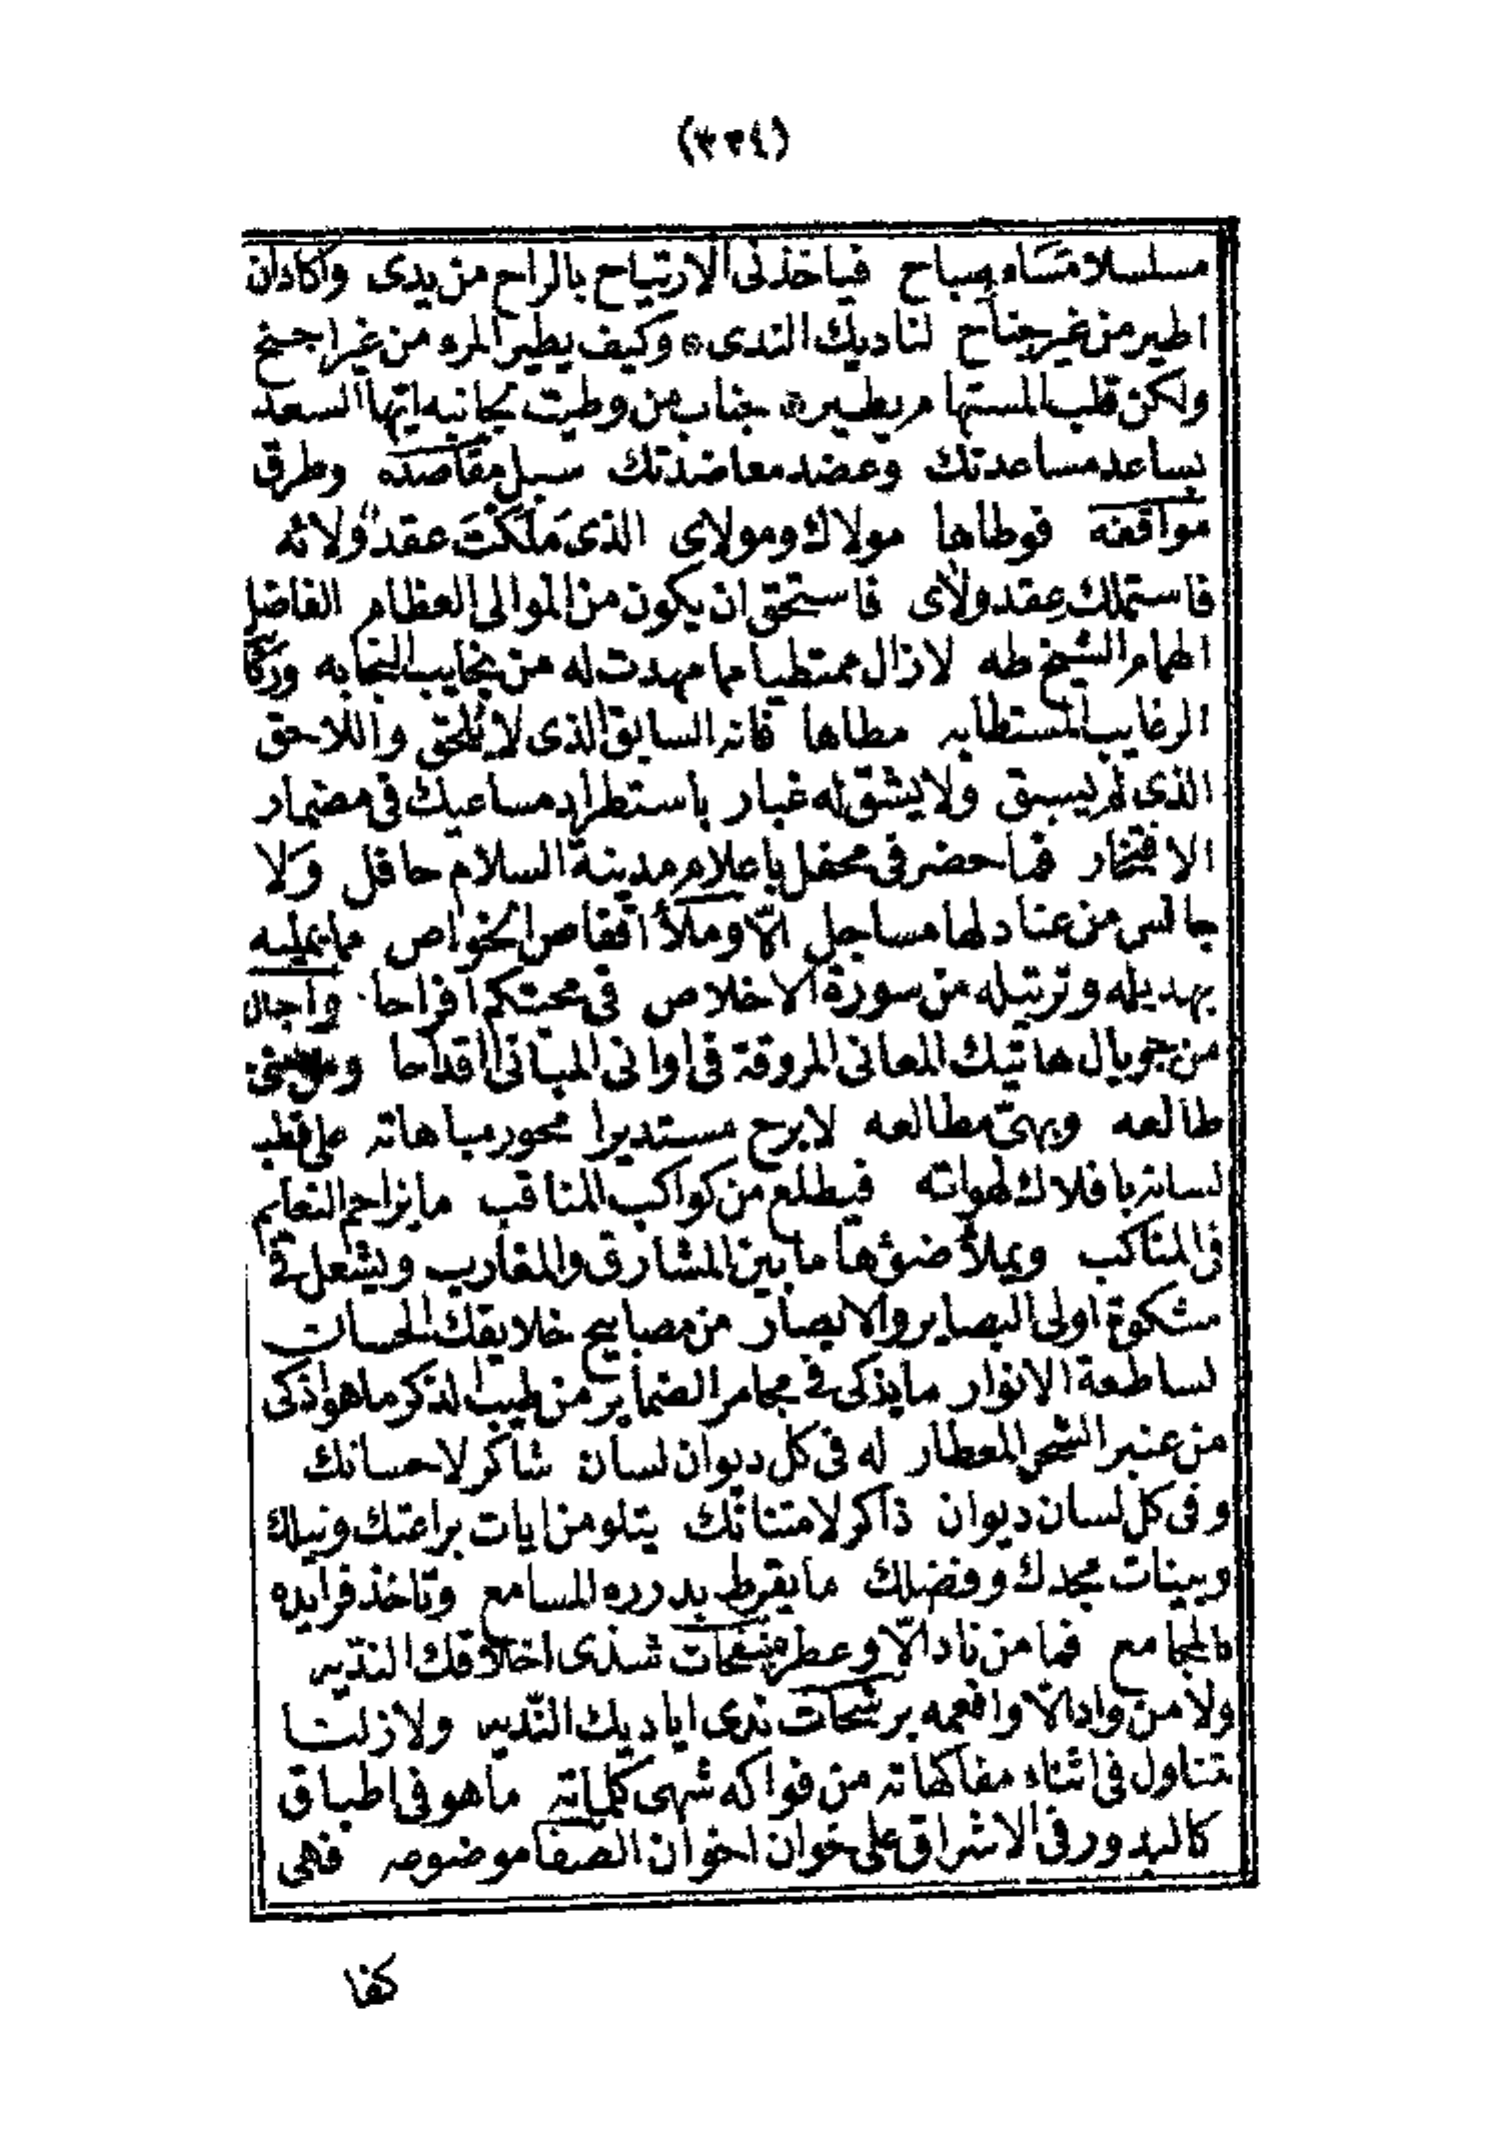 (٣٣٤)
مسلسلا مساء بصباح فياخذنى الارتياح بالراح من يدى واكادان
اطير من غير جناح لناديك الندى ۞ وكيف يطير المرء من غير اجنح
ولكن قلب المستهام يطير ۞ جناب من وطيت بجانبه ايتها السعد
بساعد مساعدتك وعضد معاضدتك سبل مقاصده وطرق
مواقفه فوطاها مولاك ومولاى الذى مَلكْتَ عقد ولائه
فاستملك عقد ولاى فاستحق ان يكون من الموالى العظام الفاضل
الهمام الشيخ طه لازال ممتطيا مما مهدت له من نجايب النجابه
الرغايب المستطابه مطاها فانه السابق الذى لا يلحق واللاحق
الذى لم يسبق ولا يشق له غبار باستطراد مساعيك فى مضمار
الافتخار فما حضر فى محفل باعلام مدينة السلام حافل وَلا
جالس من عنادلها مساجل الّا وملأ اقفاص الخواص مما يمليه
بهديله وترتيله من سورة الاخلاص فى محبتكم افراحا واجال
من جريال هاتيك المعانى المروقة فى اوانى المبانى اقداحا
طالعه وبهىّ مطالعه لا برح مستديرا محور مباهاته على قطب
لسانه بافلاك لهواته فيطلع من كواكب المناقب ما يزاحم النعايم
فى المناكب ويملأ ضؤها ما بين المشارق والمغارب ويشعل فى
مشكوة اولى البصاير والابصار من مصابيح خلايقك الحسان
لساطعة الانوار ما يذكى فى مجامر الضماير من طيب الذكر ما هو اذكى
من عنبر الشحر المعطار له فى كل ديوان لسان شاكر لاحسانك
وفى كل لسان ديوان ذاكر لامتنانك يتلو من ايات براعتك ونبلك
وبينات مجدك وفضلك ما يقرط بدرره المسامع وتاخذ فرايده
المجامع فما من ناد الّا وعطر بنفحات شذى اخلاقك النديه
ولا من واد الّا وافعمه برشحات ندى اياديك النّديه ولا زلنا
نتناول فى اثناء مفاكهاته من فواكه شهى كلماته ما هو فى اطباق
كالبدور فى الاشراق على خوان اخوان الصفا موضوعه فهى
كفا